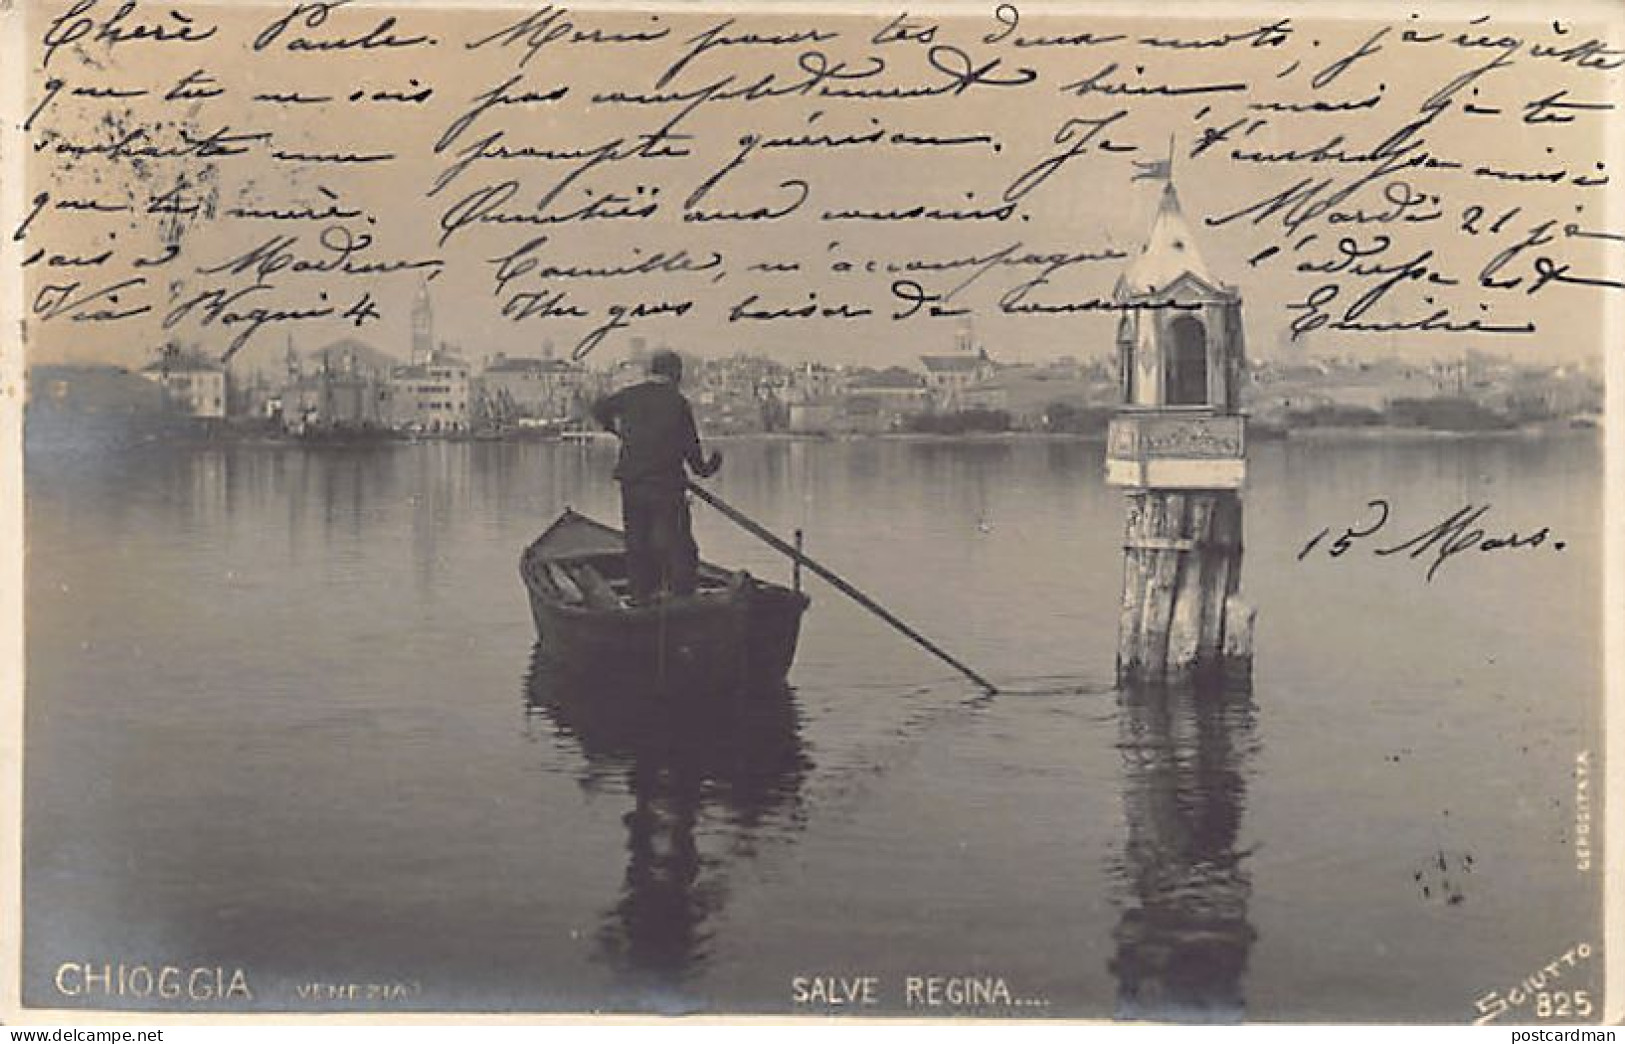 Chère Paule. Merci pour tes deux mots, je régrette
que tu ne sois pas completement bien, mais je te
souhaite une prompte guérison. Je t'embrasse ainsi
que ta mère. Amitiës aux cousins. Mardi 21 je
sais à Modene, Camille, m'accompagne l'adresse est
Via Bagni 4 Un gros baiser da cousine Emilie
15 Mars.
DEPOSITATA
CHIOGGIA (VENEZIA)
SALVE REGINA....
SCIUTTO
825
postcardman